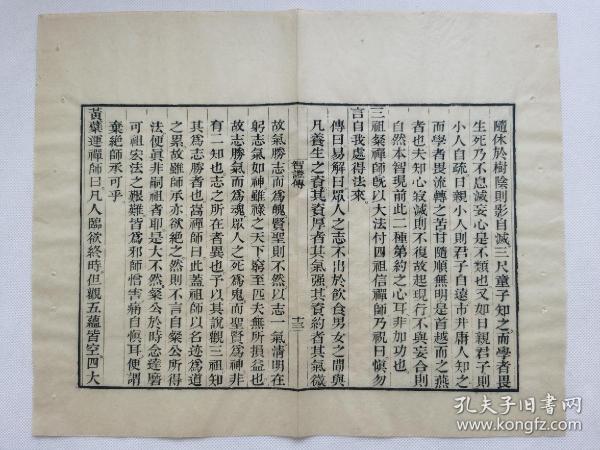 隨休於樹陰則影自滅三尺童子知之而學者畏
生死乃不息滅妄心是不類也又如日親君子則
小人自疏日親小人則君子自遠市井庸人知之
而學者畏流轉之苦甘隨順無明是首越而之燕
者也夫知心寂滅則不復故起現行不與妄合則
自然本智現前此二種第約之心耳非加功也
三祖粲禪師既以大法付四祖信禪師乃祝曰慎勿
言自我處得法來
傳曰易解曰眾人之志不出於飲食男女之間與
凡養生之資其資厚者其氣强其資約者其氣微
智證傳
十三
故氣勝志而爲魄賢聖則不然以志一氣清明在
躬志氣如神雖祿之天下窮至匹夫無所損益也
故志勝氣而爲魂眾人之死爲鬼而聖賢爲神非
有二知也志之所在者異也予以其說觀三祖知
其爲志勝者也嵩禪師曰此蓋祖師以名迹爲道
之累故雖師承亦欲絶之然則不言自粲公所得
法便眞非嗣祖者耶是大不然粲公於時念達磨
可祖宏法之艱難皆爲邪師憎害痛自慎耳便謂
棄絶師承可乎
黃蘗運禪師曰凡人臨欲終時但觀五蘊皆空四大
孔夫子旧书网
www.kongfz.com